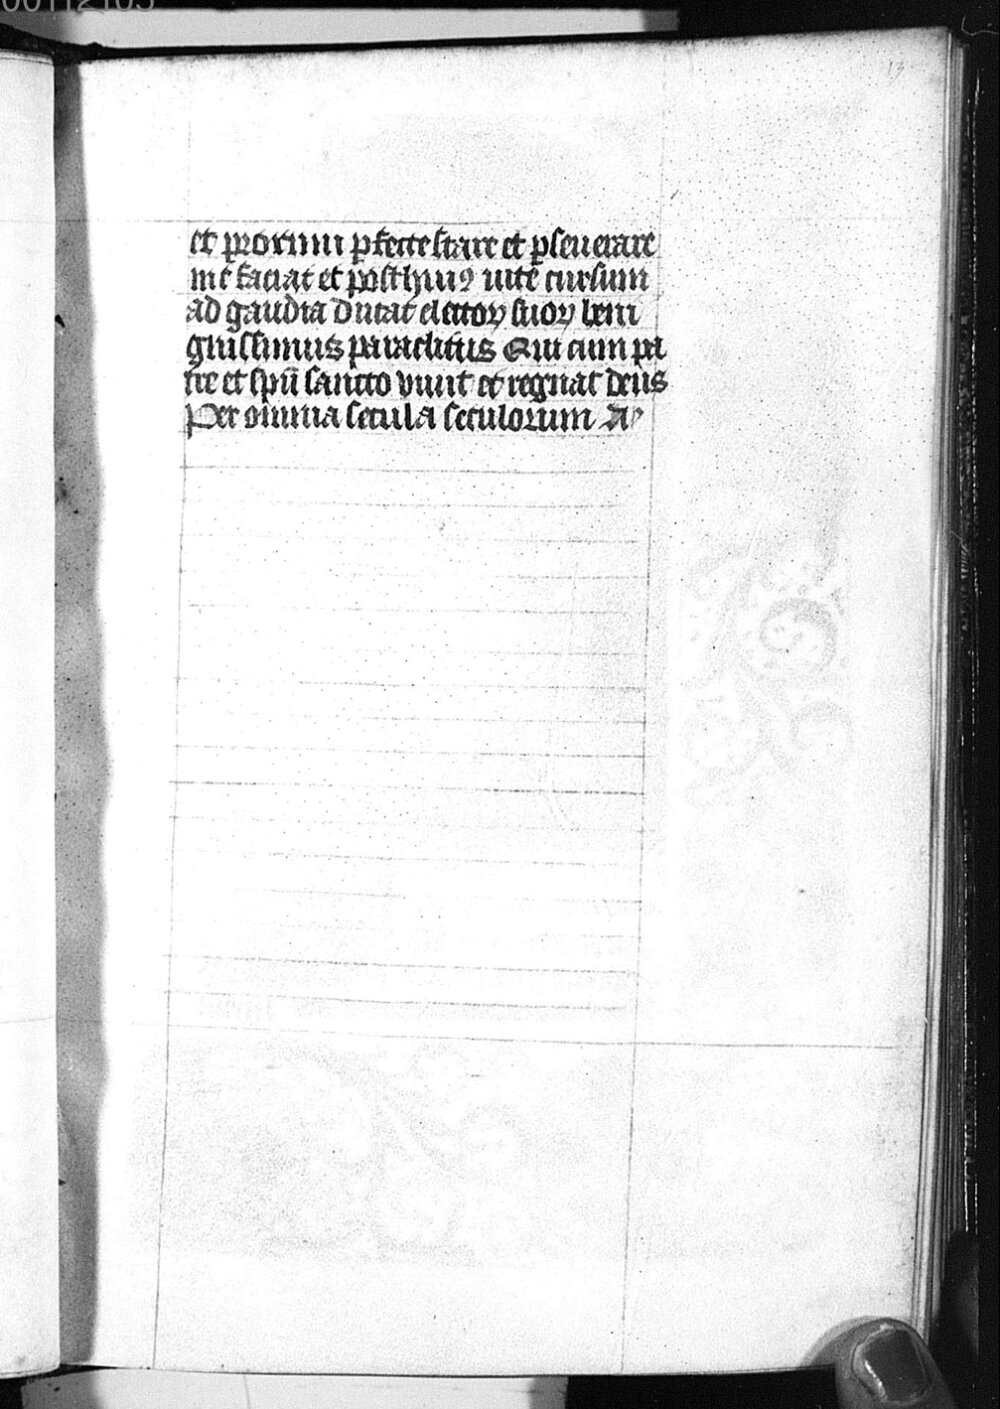 00112105
13
et proximi pfecte stare et pseuerare
me faciat et post huiꝰ uite cursum
ad gaudia ducat electoꝝ suoꝝ beni
gnissimus paraclitus Qui cum pa
tre et spū sancto viuit et regnat deus
Per omnia secula seculorum A